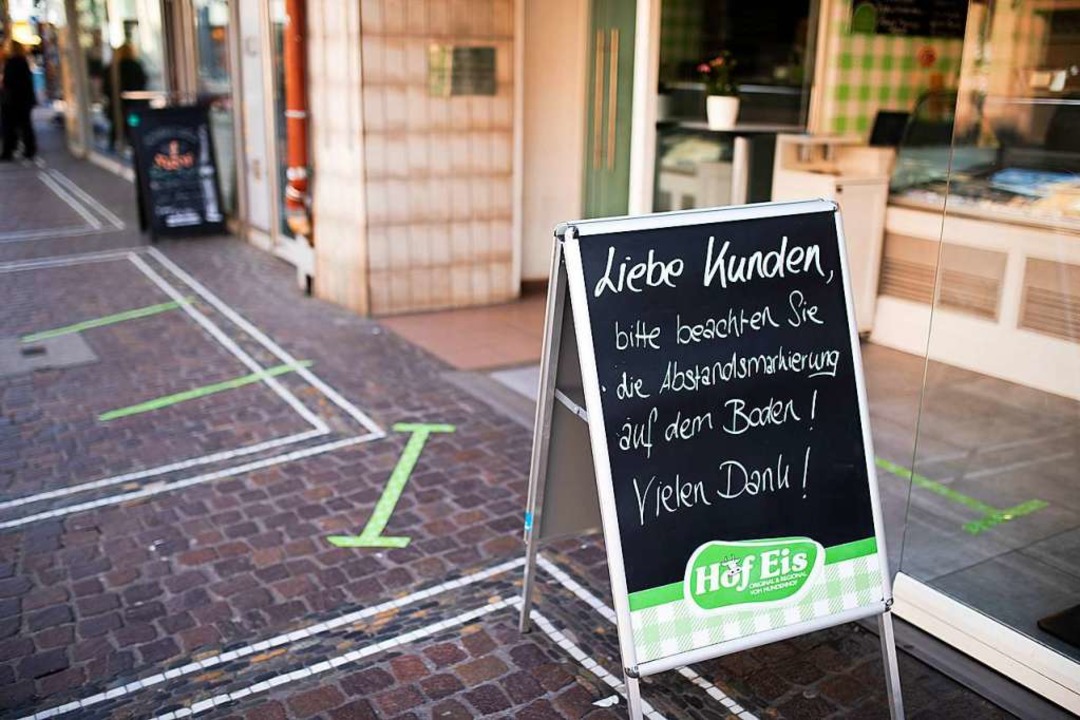 Liebe Kunden,
bitte beachten Sie
die Abstandsmarkierung
auf dem Boden!
Vielen Dank!
Hof Eis
ORIGINAL & REGIONAL
VOM HUNDENHOF